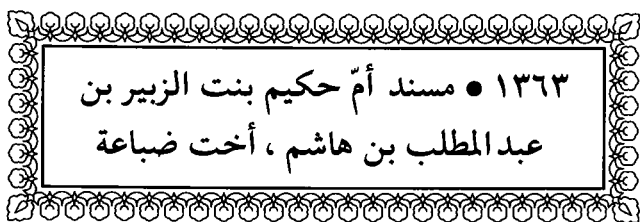 ١٣٦٣ ● مسند أمّ حكيم بنت الزبير بن
عبدالمطلب بن هاشم ، أخت ضباعة